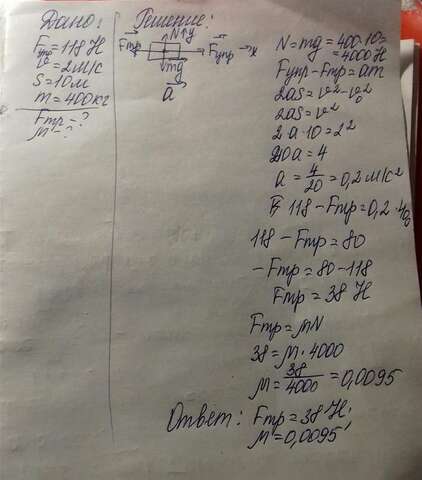 Дано:
Fупр=118 Н
v=2 м/с
S=10м
m=400кг
Fтр-?
м-?
Решение:
N↑y
Fтр
Fупр
x
mg
a
N=mg=400·10=
=4000Н
Fупр-Fтр=am
2aS=v²-v₀²
2aS=v²
2·a·10=2²
20a=4
a=4/20=0,2 м/с²
118-Fтр=0,2·400
118-Fтр=80
-Fтр=80-118
Fтр=38 Н
Fтр=мN
38=м·4000
м=38/4000=0,0095
Ответ: Fтр=38Н;
м=0,0095